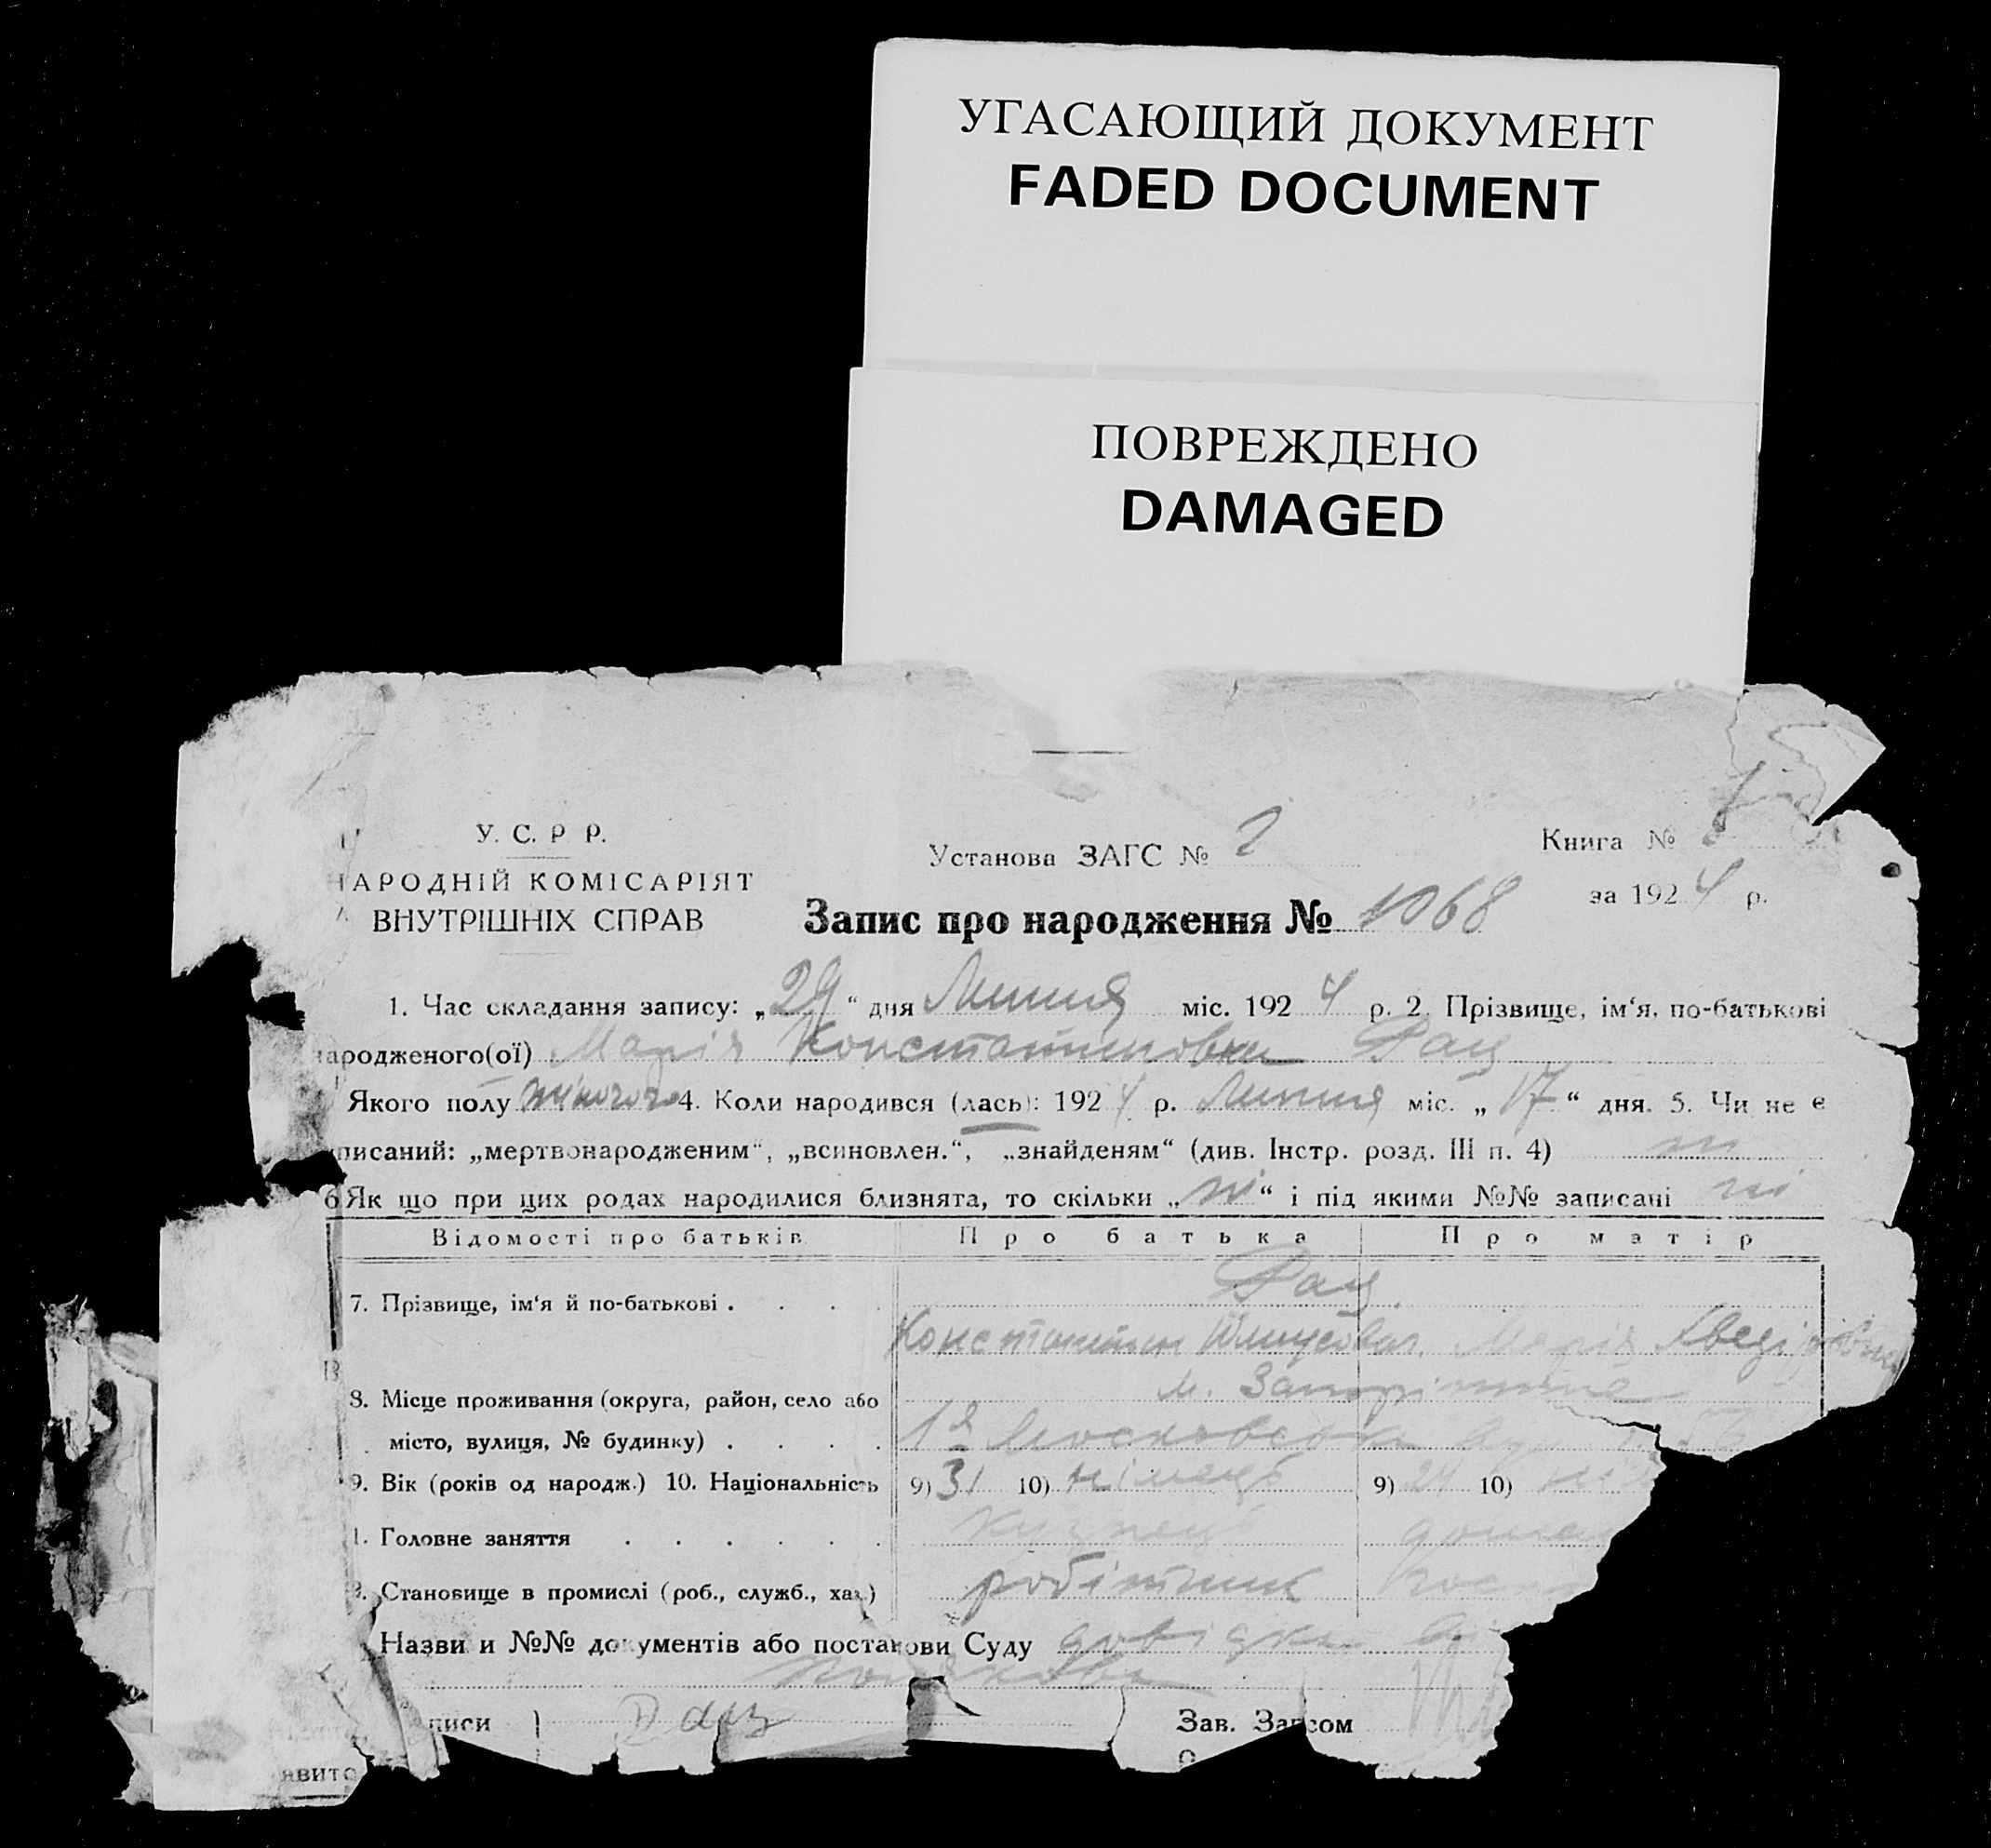 УГАСАЮЩИЙ ДОКУМЕНТ
FADED DOCUMENT
ПОВРЕЖДЕНО
DAMAGED
У. С. Р Р.
АРОДНІЙ КОМІСАРІЯТ
ВНУТРІШНІХ СПРАВ
Установа ЗАГС № 2
Книга №
за 1924 р.
Запис про народження № 1068
1. Час складання запису: „29“ дня Липня міс. 1924 р. 2. Прізвище, ім‘я, по-батькові
народженого(ої) Марія Константиновна Дац
Якого полу жіночого 4. Коли народився (лась): 1924 р. Липня міс. „17“ дня. 5. Чи не є
писаний: „мертвонародженим“, „всиновлен.“, „знайденям“ (див. Інстр. розд. III п. 4) ні
6 Як що при цих родах народилися близнята, то скільки „ні“ і під якими №№ записані ні
Відомості про батьків Про батька Про матір
7. Прізвище, ім‘я й по-батькові . . . . Дац
Константин Марія
8. Місце проживання (округа, район, село або м. Запоріжжя
місто, вулиця, № будинку) . . . . 1а Московська
9. Вік (років од народж.) 10. Національність 9) 31 10) німець 9) 24 10)
1. Головне заняття . . . . . . Кузнець
3. Становище в промислі (роб., служб., хаз.) робітник
Назви и №№ документів або постанови Суду довідка
писи Дац Зав. Загсом
явито